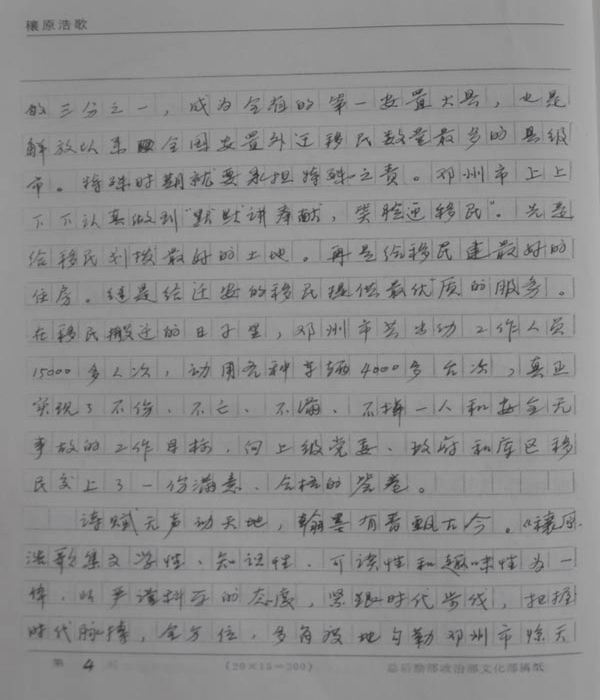 穰原浩歌
的三分之一，成为全省的第一安置大县，也是
解放以来全国安置外迁移民数量最多的县级
市。特殊时期就要承担特殊之责。邓州市上上
下下认真做到"默默讲奉献，笑脸迎移民"。先是
给移民划拨最好的土地。再是给移民建最好的
住房。继是给迁安的移民提供最优质的服务。
在移民搬迁的日子里，邓州市共出动工作人员
15000多人次，动用各种车辆4000多台次，真正
实现了不伤、不亡、不漏、不掉一人和安全无
事故的工作目标，向上级党委、政府和库区移
民交上了一份满意、合格的答卷。
诗赋无声动天地，翰墨有香飘古今。《穰原
浩歌集文学性、知识性、可读性和趣味性为一
体，以严谨科学的态度，紧跟时代步伐，把握
时代脉搏，全方位，多角度地勾勒邓州市惊天
第 4 页
(20×15=300)
总后勤部政治部文化部稿纸